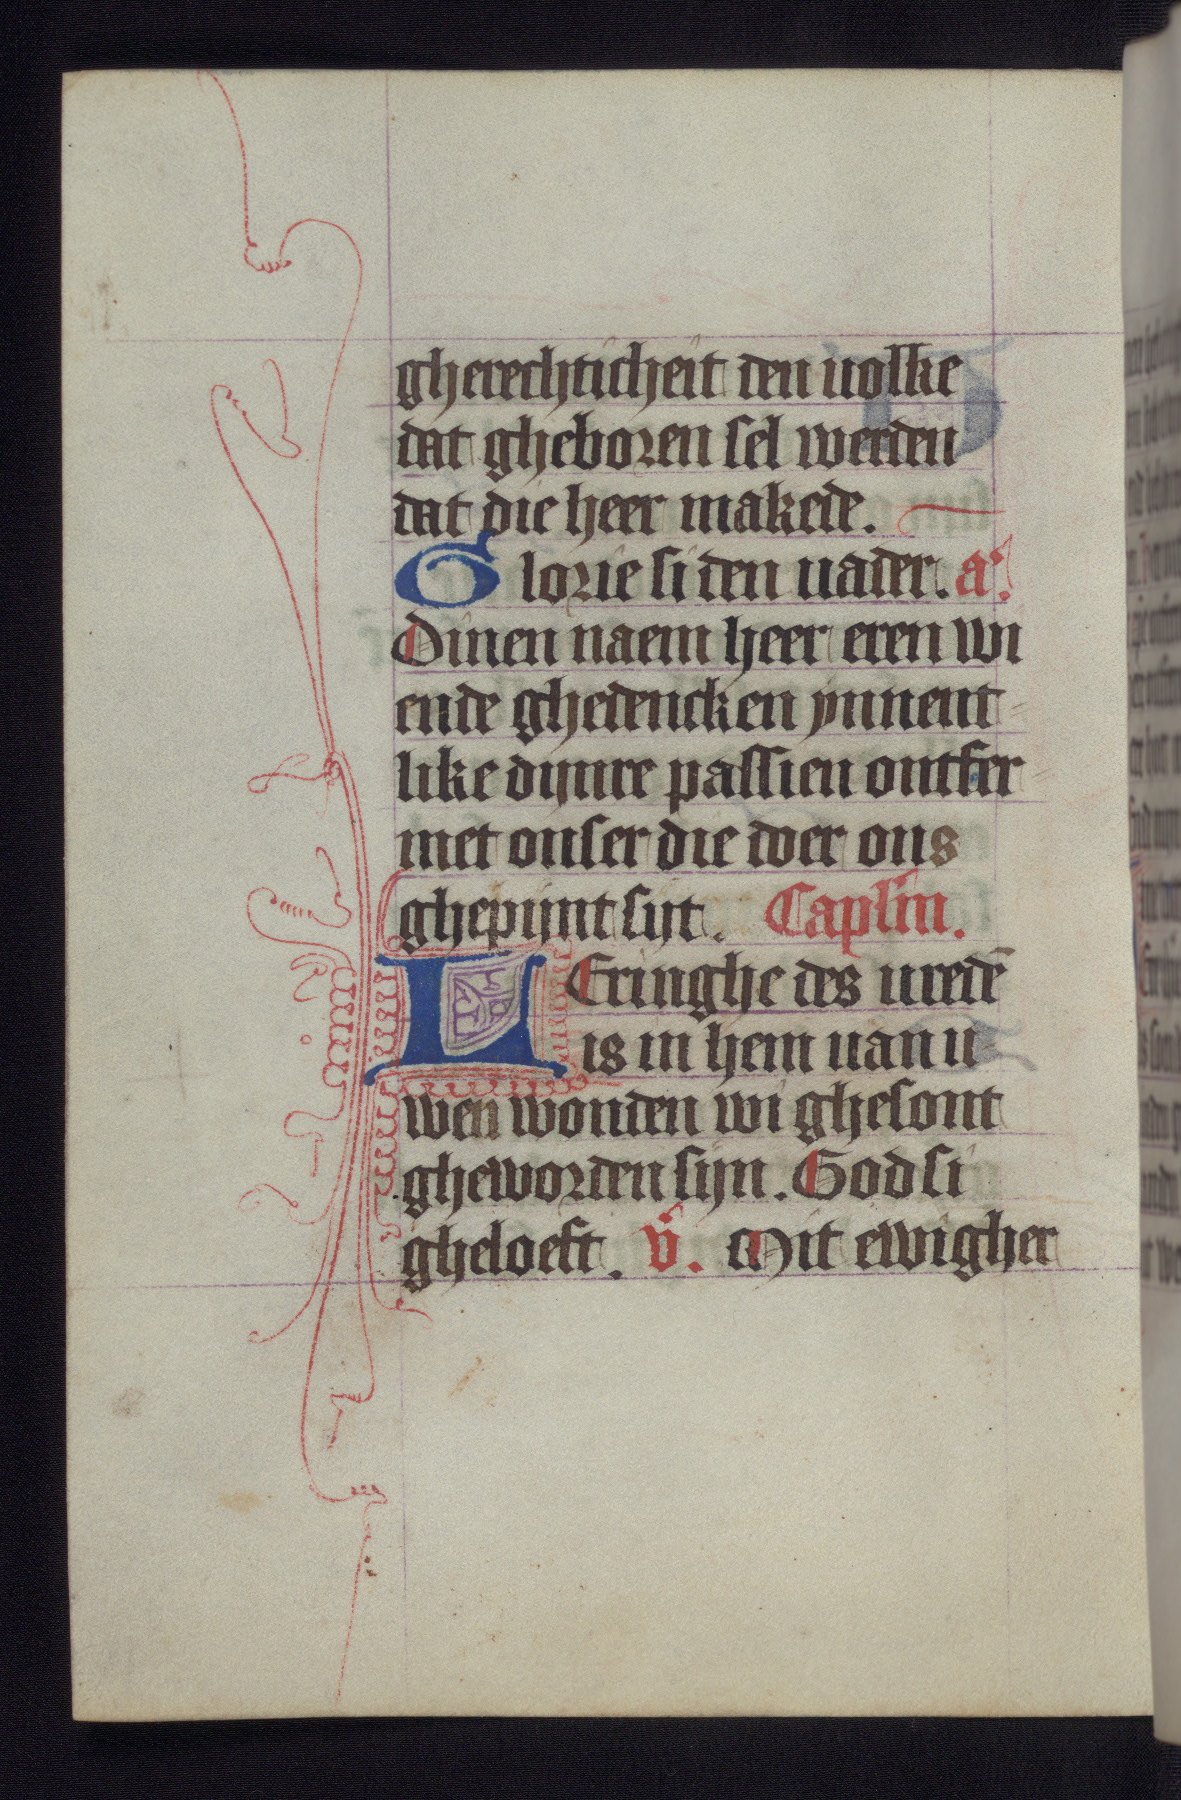 gherechticheit den uolke
dat gheboren sel werden
dat die heer makede.
Glorie si den uader. a᷒.
Dinen naem heer eren wi
ende ghedencken ynnent
like dijnre passien ontfer
met onser die voer ons
ghepijnt sijt. Caplm̄.
LEringhe des uredē
is in hem uan u
wen wonden wi ghesont
gheworden sijn. God si
gheloeft. v̄. Mit ewigher